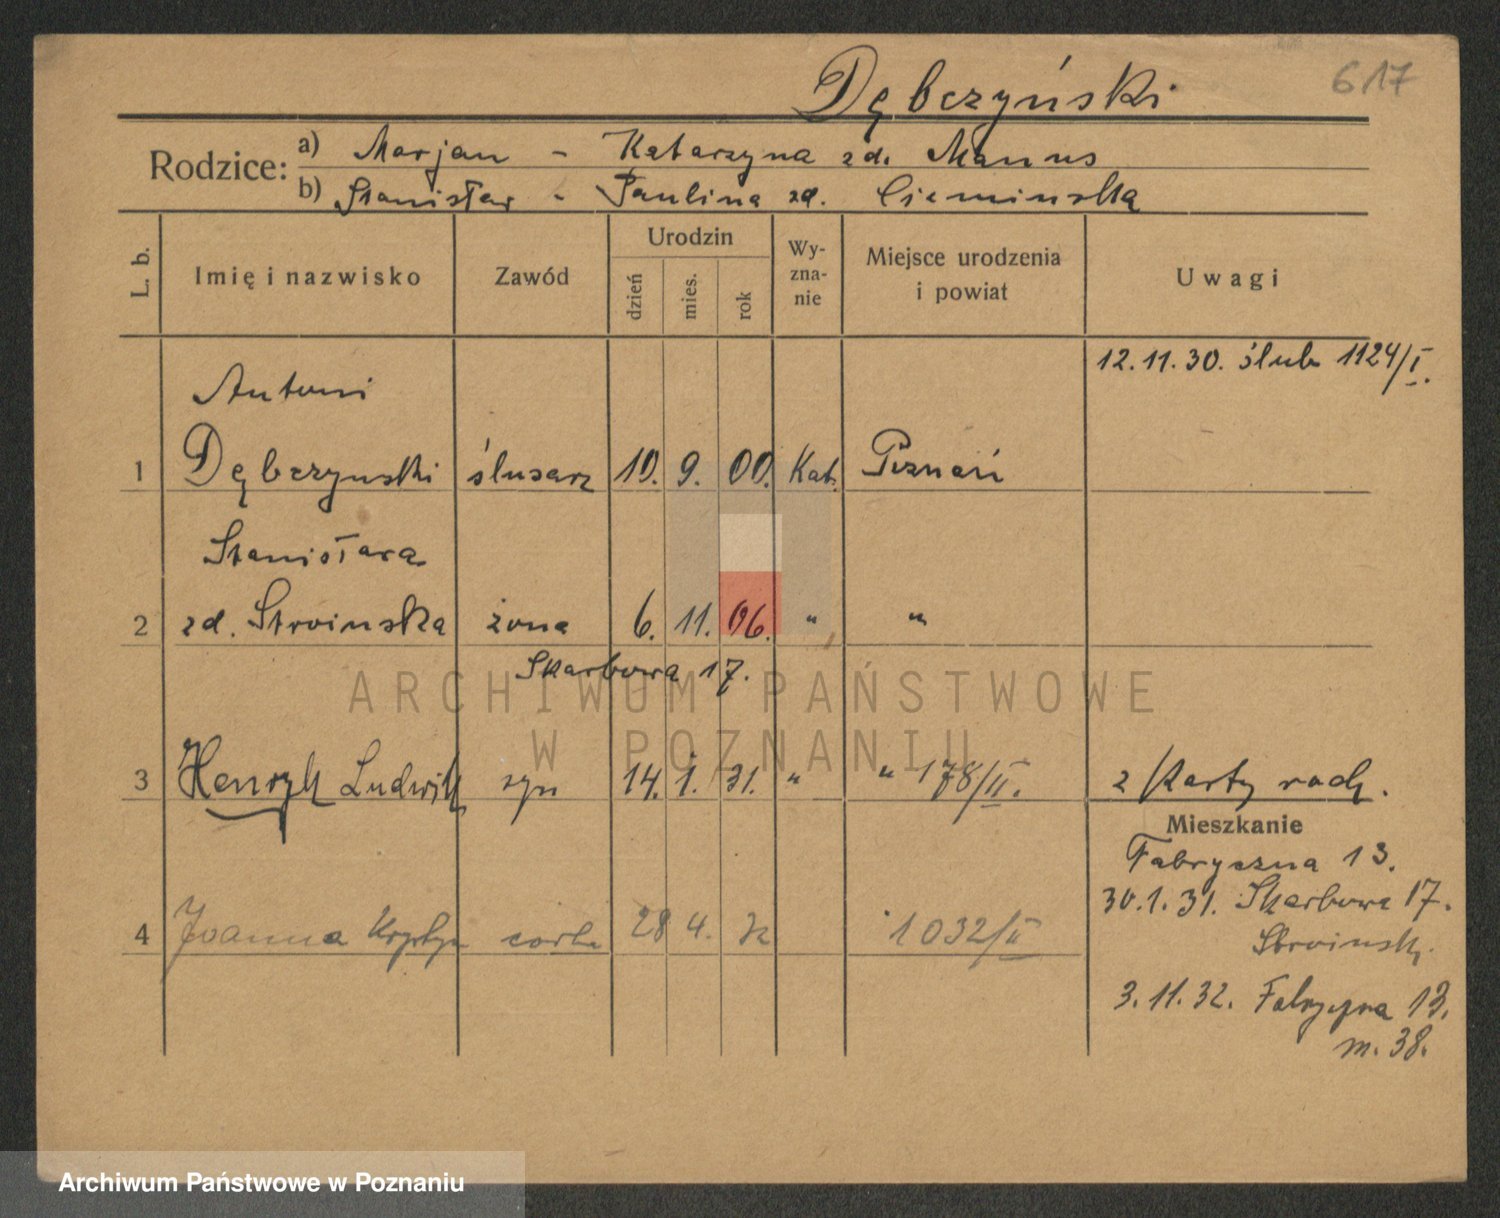 Dębczyński 617
Rodzice: a) Marjan - Katarzyna zd. Manus
b) Stanisław - Paulina zd. Ciemińska
L. b. Imię i nazwisko Zawód Urodzin dzień mies. rok Wyznanie Miejsce urodzenia i powiat Uwagi
12.11.30. ślub 1124/I.
Antoni
1 Dębczynski ślusarz 10. 9. 00. Kat. Poznań
Stanisława
2 zd. Stroinska żona 6. 11. 06. " "
Skarbowa 17.
ARCHIWUM PAŃSTWOWE
W POZNANIU
3 Henryk Ludwik syn 14. 1. 31. " " 178/II. z Karty rodz.
Mieszkanie
Fabryczna 13.
30.1.31. Skarbowa 17.
4 Joanna Krystyn córka 28 4. 32 1032/II
Stroinsk.
3.11.32. Fabryczna 13.
m. 38.
Archiwum Państwowe w Poznaniu